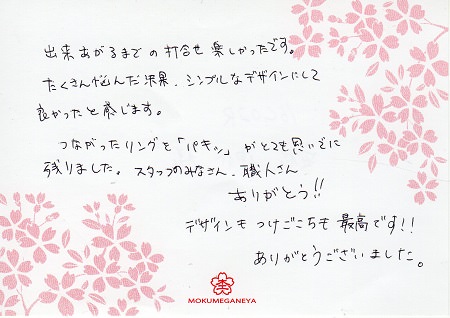 出来あがるまでの打合せ楽しかったです。
たくさん悩んだ結果、シンプルなデザインにして
良かったと感じます。
つながったリングを「パキッ」がとても思いでに
残りました。スタッフのみなさん、職人さん
ありがとう!!
デザインもつけごこちも最高です!!
ありがとうございました。
MOKUMEGANEYA